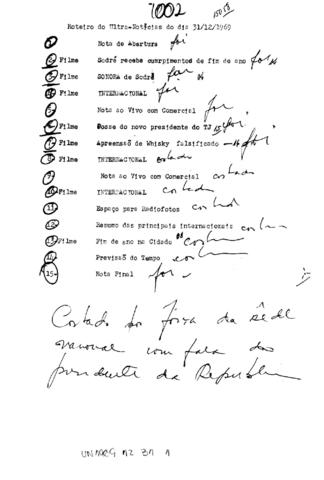 7002
Roteiro do Ultra-Notícias do dia 31/12/1969
1 Nota de Abertura foi
2- Filme Sodré recebe cumprimentos de fim de ano foi
3- Filme SONORA de Sodré foi
4- Filme INTERNACIONAL foi
5- Nota ao Vivo com Comercial foi
6- Filme Posse do novo presidente do TJ foi
7- Filme Apreensão de Whisky falsificado foi
8- Filme INTERNACIONAL cortado
9- Nota ao Vivo com Comercial cortado
10- Filme INTERNACIONAL cortado
11- Espaço para Radiofotos cortado
12- Resumo das principais internacionais cortado
13- Filme Fim de ano na Cidade cortado
14- Previsão do Tempo cortado
15- Nota Final foi
Cortado por força da rêde
nacional com fala do
presidente da República